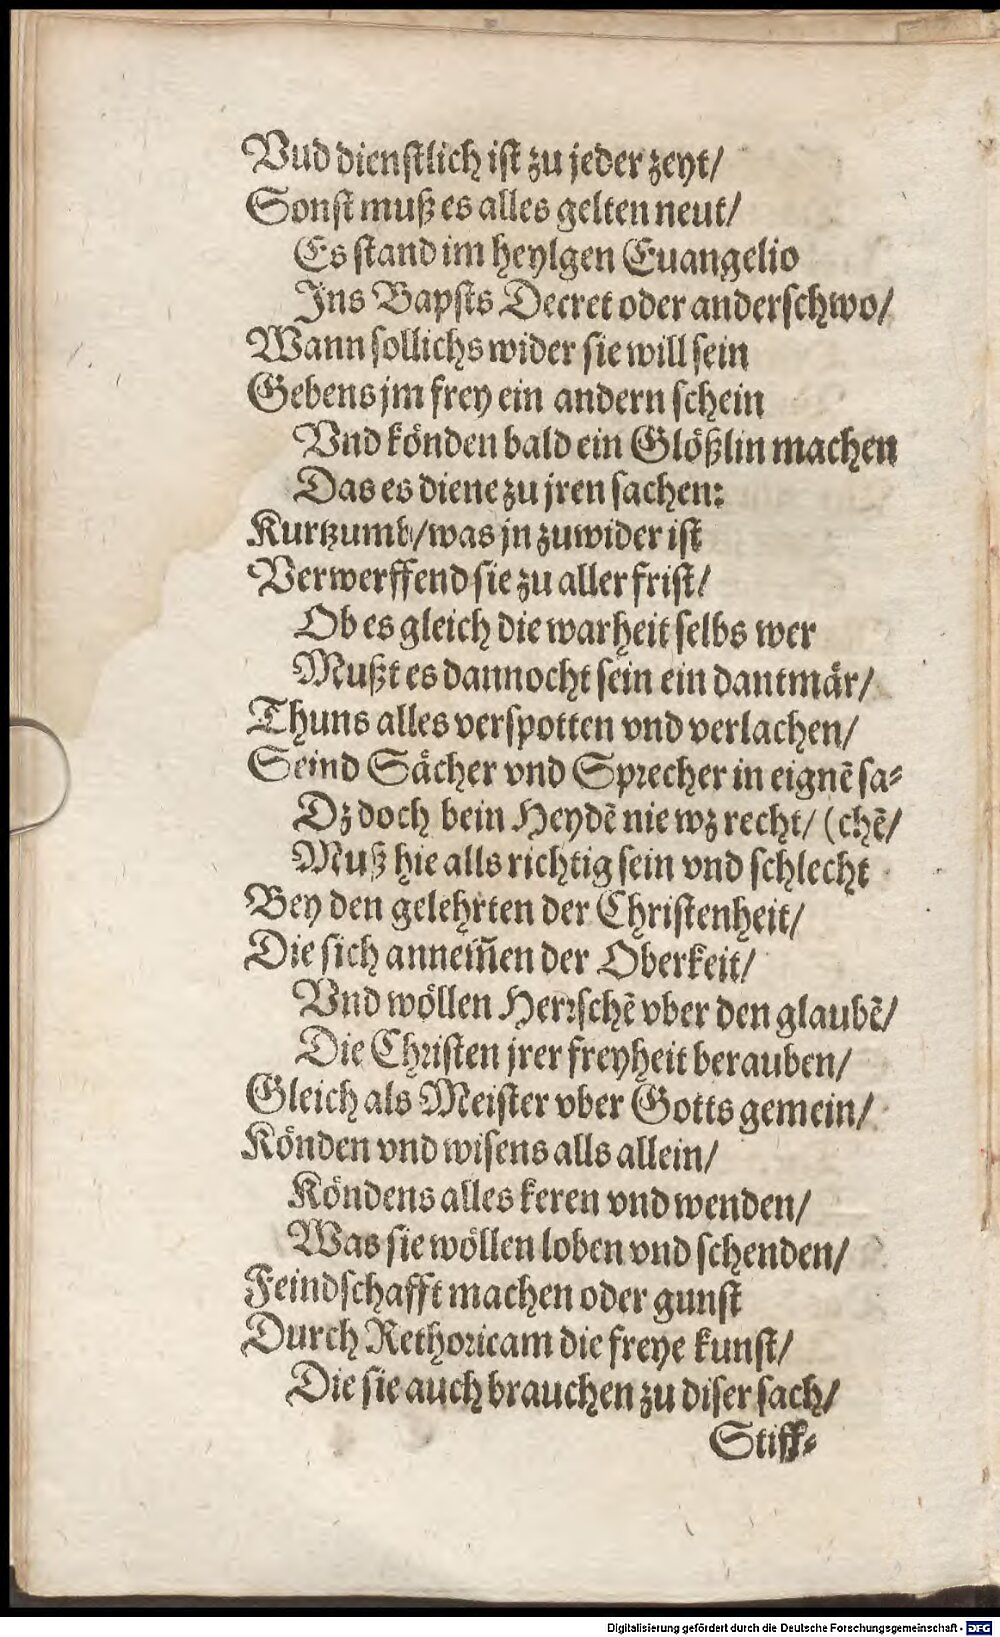 Vud dienſtlich iſt zu jeder zeyt/
Sonſt muß es alles gelten neut/
Es ſtand im heylgen Euangelio
Jns Bapſts Decret oder anderſchwo/
Wann ſollichs wider ſie will ſein
Gebens jm frey ein andern ſchein
Vnd könden bald ein Glößlin machen
Das es diene zu jren ſachen:
Kurtzumb/was jn zuwider iſt
Verwerffend ſie zu aller friſt/
Ob es gleich die warheit ſelbs wer
Mußt es dannocht ſein ein dantmär/
Thuns alles verſpotten vnd verlachen/
Seind Sächer vnd Sprecher in eignẽ ſa⸗
Dz doch bein Heydẽ nie wz recht/ (chẽ/
Muß hie alls richtig ſein vnd ſchlecht
Bey den gelehrten der Chriſtenheit/
Die ſich annem̃en der Oberkeit/
Vnd wöllen Herꝛſchẽ vber den glaubẽ/
Die Chꝛiſten jrer freyheit berauben/
Gleich als Meiſter vber Gotts gemein/
Könden vnd wiſens alls allein/
Köndens alles keren vnd wenden/
Was ſie wöllen loben vnd ſchenden/
Feindſchafft machen oder gunſt
Durch Rethoꝛicam die freye kunſt/
Die ſie auch brauchen zu diſer ſach/
Stiff⸗
Digitalisierung gefördert durch die Deutsche Forschungsgemeinschaft - DFG